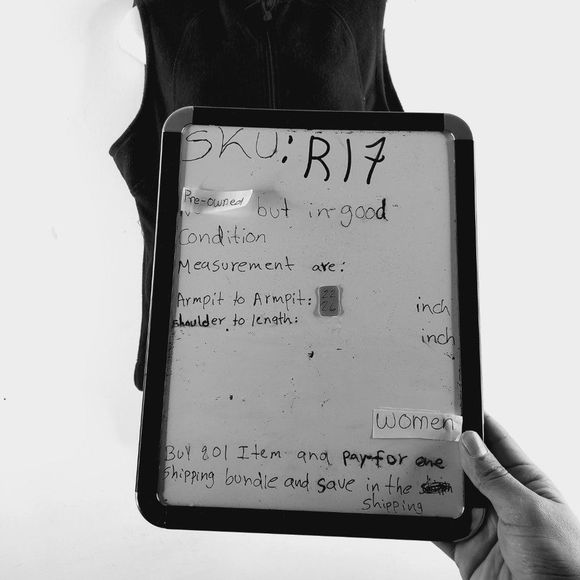 SKU: R17
Pre-owned but in good
Condition
Measurement are:
Armpit to Armpit: 22 inch
shoulder to length: 26 inch
Women
BUY 201 Item and pay for one
shipping bundle and save in the
shipping